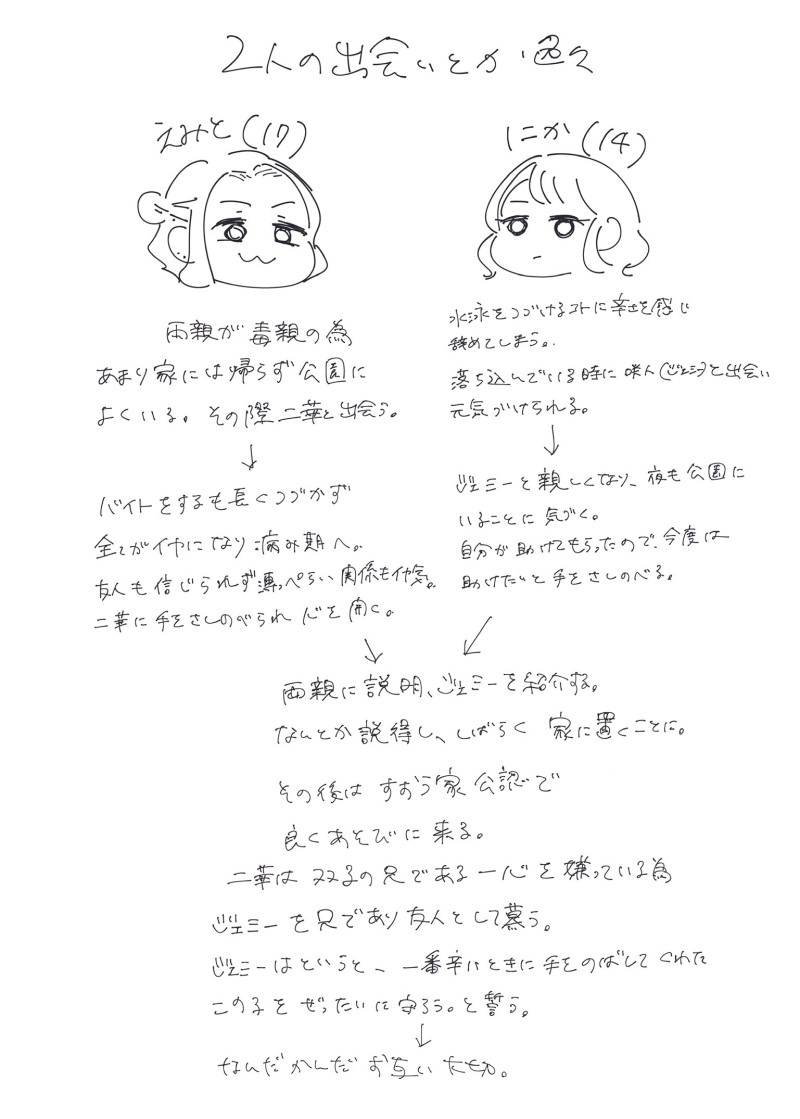 2人の出会いとか色々
えみと(17)
にか(14)
両親が毒親の為
あまり家には帰らず公園に
よくいる。その際二華と出会う。
↓
バイトをするも長くつづかず
全てがイヤになり病み期へ。
友人も信じられず薄っぺらい関係もイヤ気。
二華に手をさしのべられ心を開く。
水泳をつづけるコトに辛さを感じ
辞めてしまう。
落ち込んでいる時に咲人(ジェミー)と出会い
元気づけられる。
↓
ジェミーと親しくなり、夜も公園に
いることに気づく。
自分が助けてもらったので、今度は
助けたいと手をさしのべる。
両親に説明、ジェミーを紹介する。
なんとか説得し、しばらく家に置くことに。
その後はすおう家公認で
良くあそびに来る。
二華はふた子の兄である一心を嫌っている為
ジェミーを兄であり友人として慕う。
ジェミーはというと、一番辛いときに手をのばしてくれた
この子をぜったいに守ろう。と誓う。
↓
なんだかんだお互い大切。